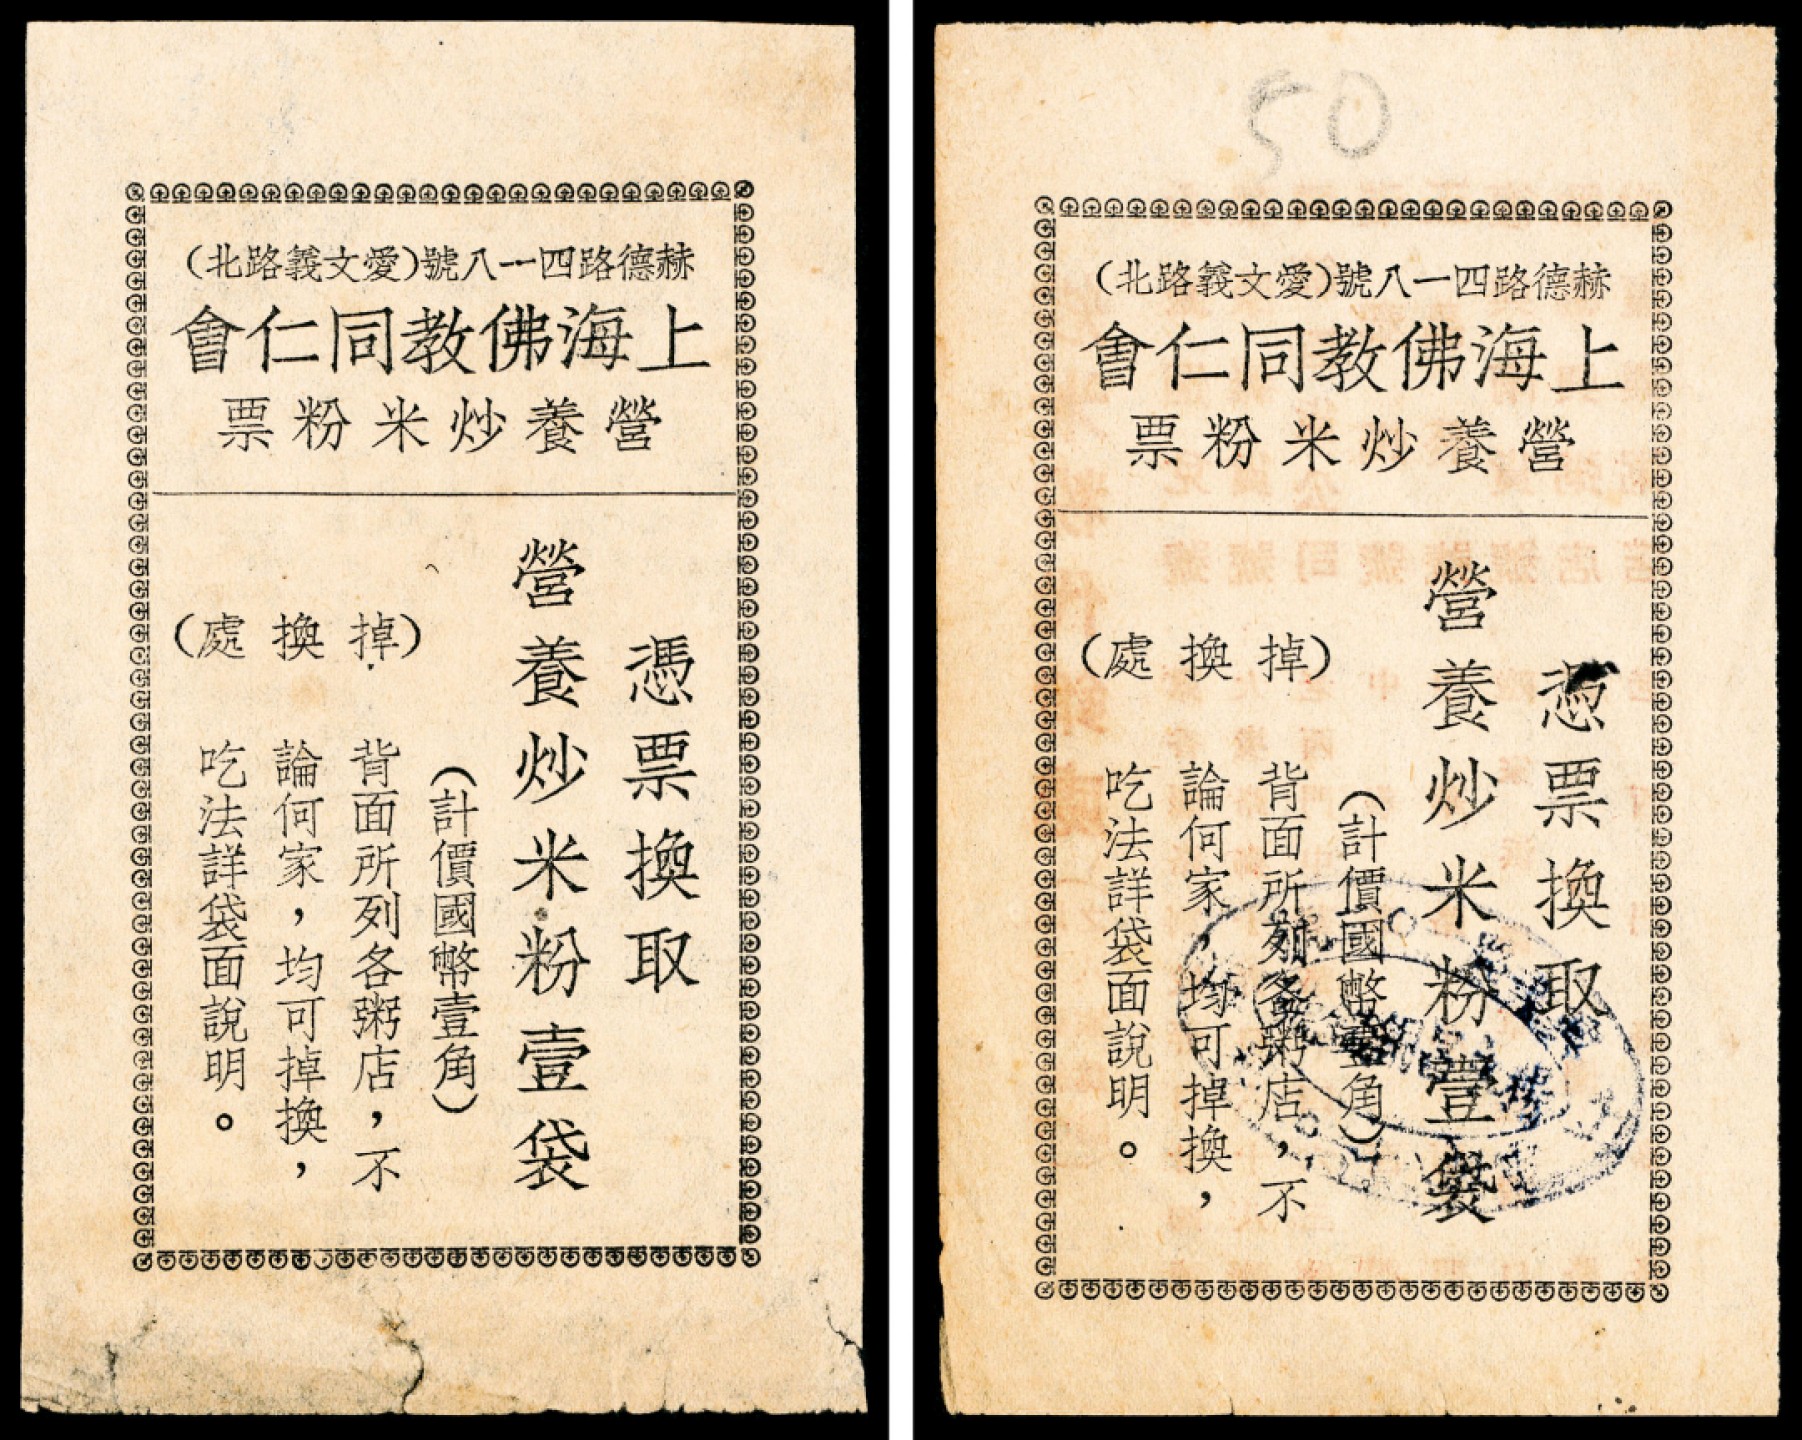 赫德路四一八號(愛文義路北)
上海佛教同仁會
營養炒米粉票
憑票換取
營養炒米粉壹袋
(計價國幣壹角)
(掉換處)
背面所列各粥店,不
論何家,均可掉換,
吃法詳袋面說明。
50
赫德路四一八號(愛文義路北)
上海佛教同仁會
營養炒米粉票
憑票換取
營養炒米粉壹袋
(計價國幣壹角)
(掉換處)
背面所列各粥店,不
論何家,均可掉換,
吃法詳袋面說明。